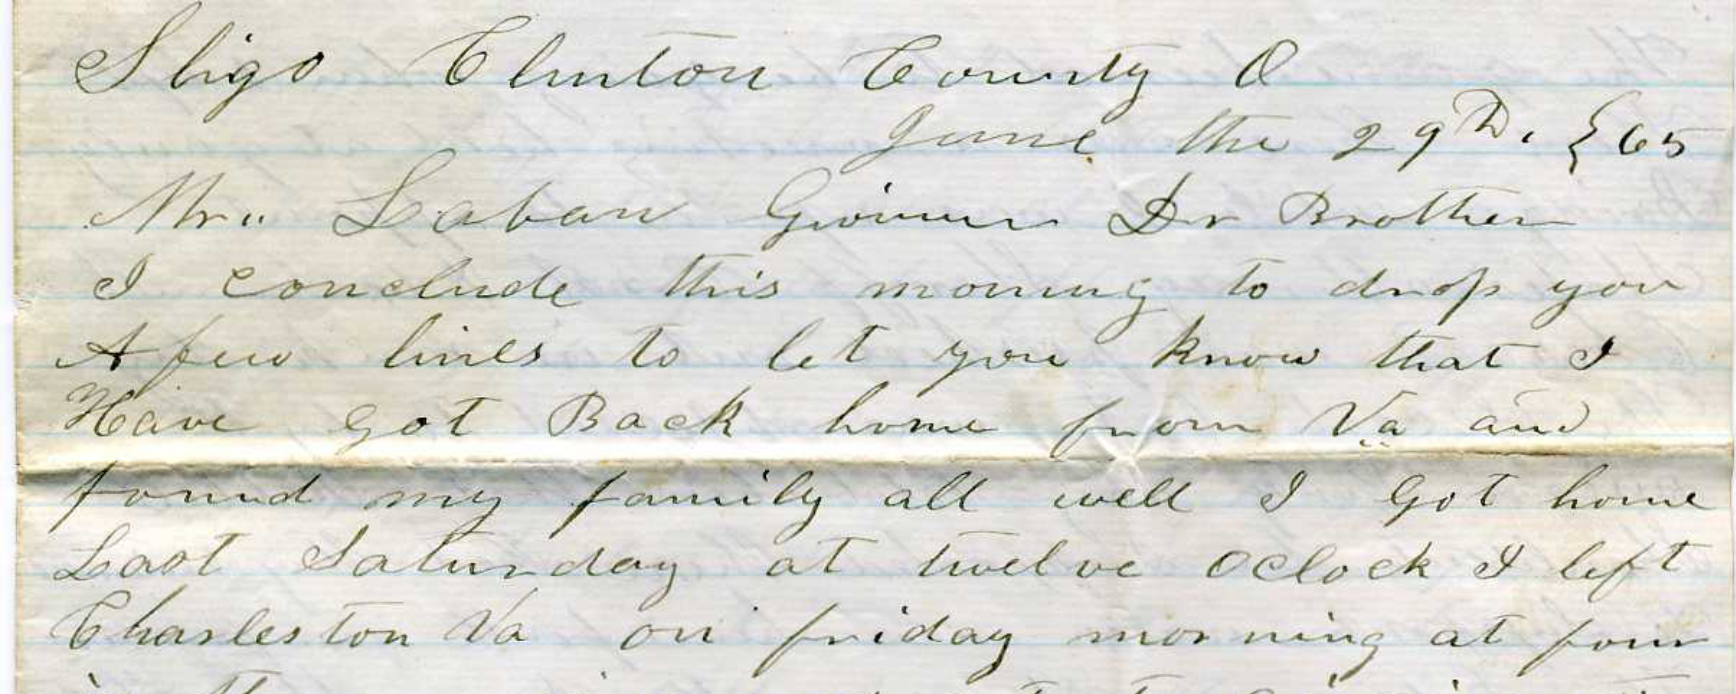 Sligo Clinton County O
June the 29th, {65
Mr.. Laban Dr Brother
I conclude this morning to drop you
A few lines to let you know that I
Have got Back home from Va and
found my family all well I Got home
Last Saturday at twelve Oclock I left
Charleston Va on friday morning at four